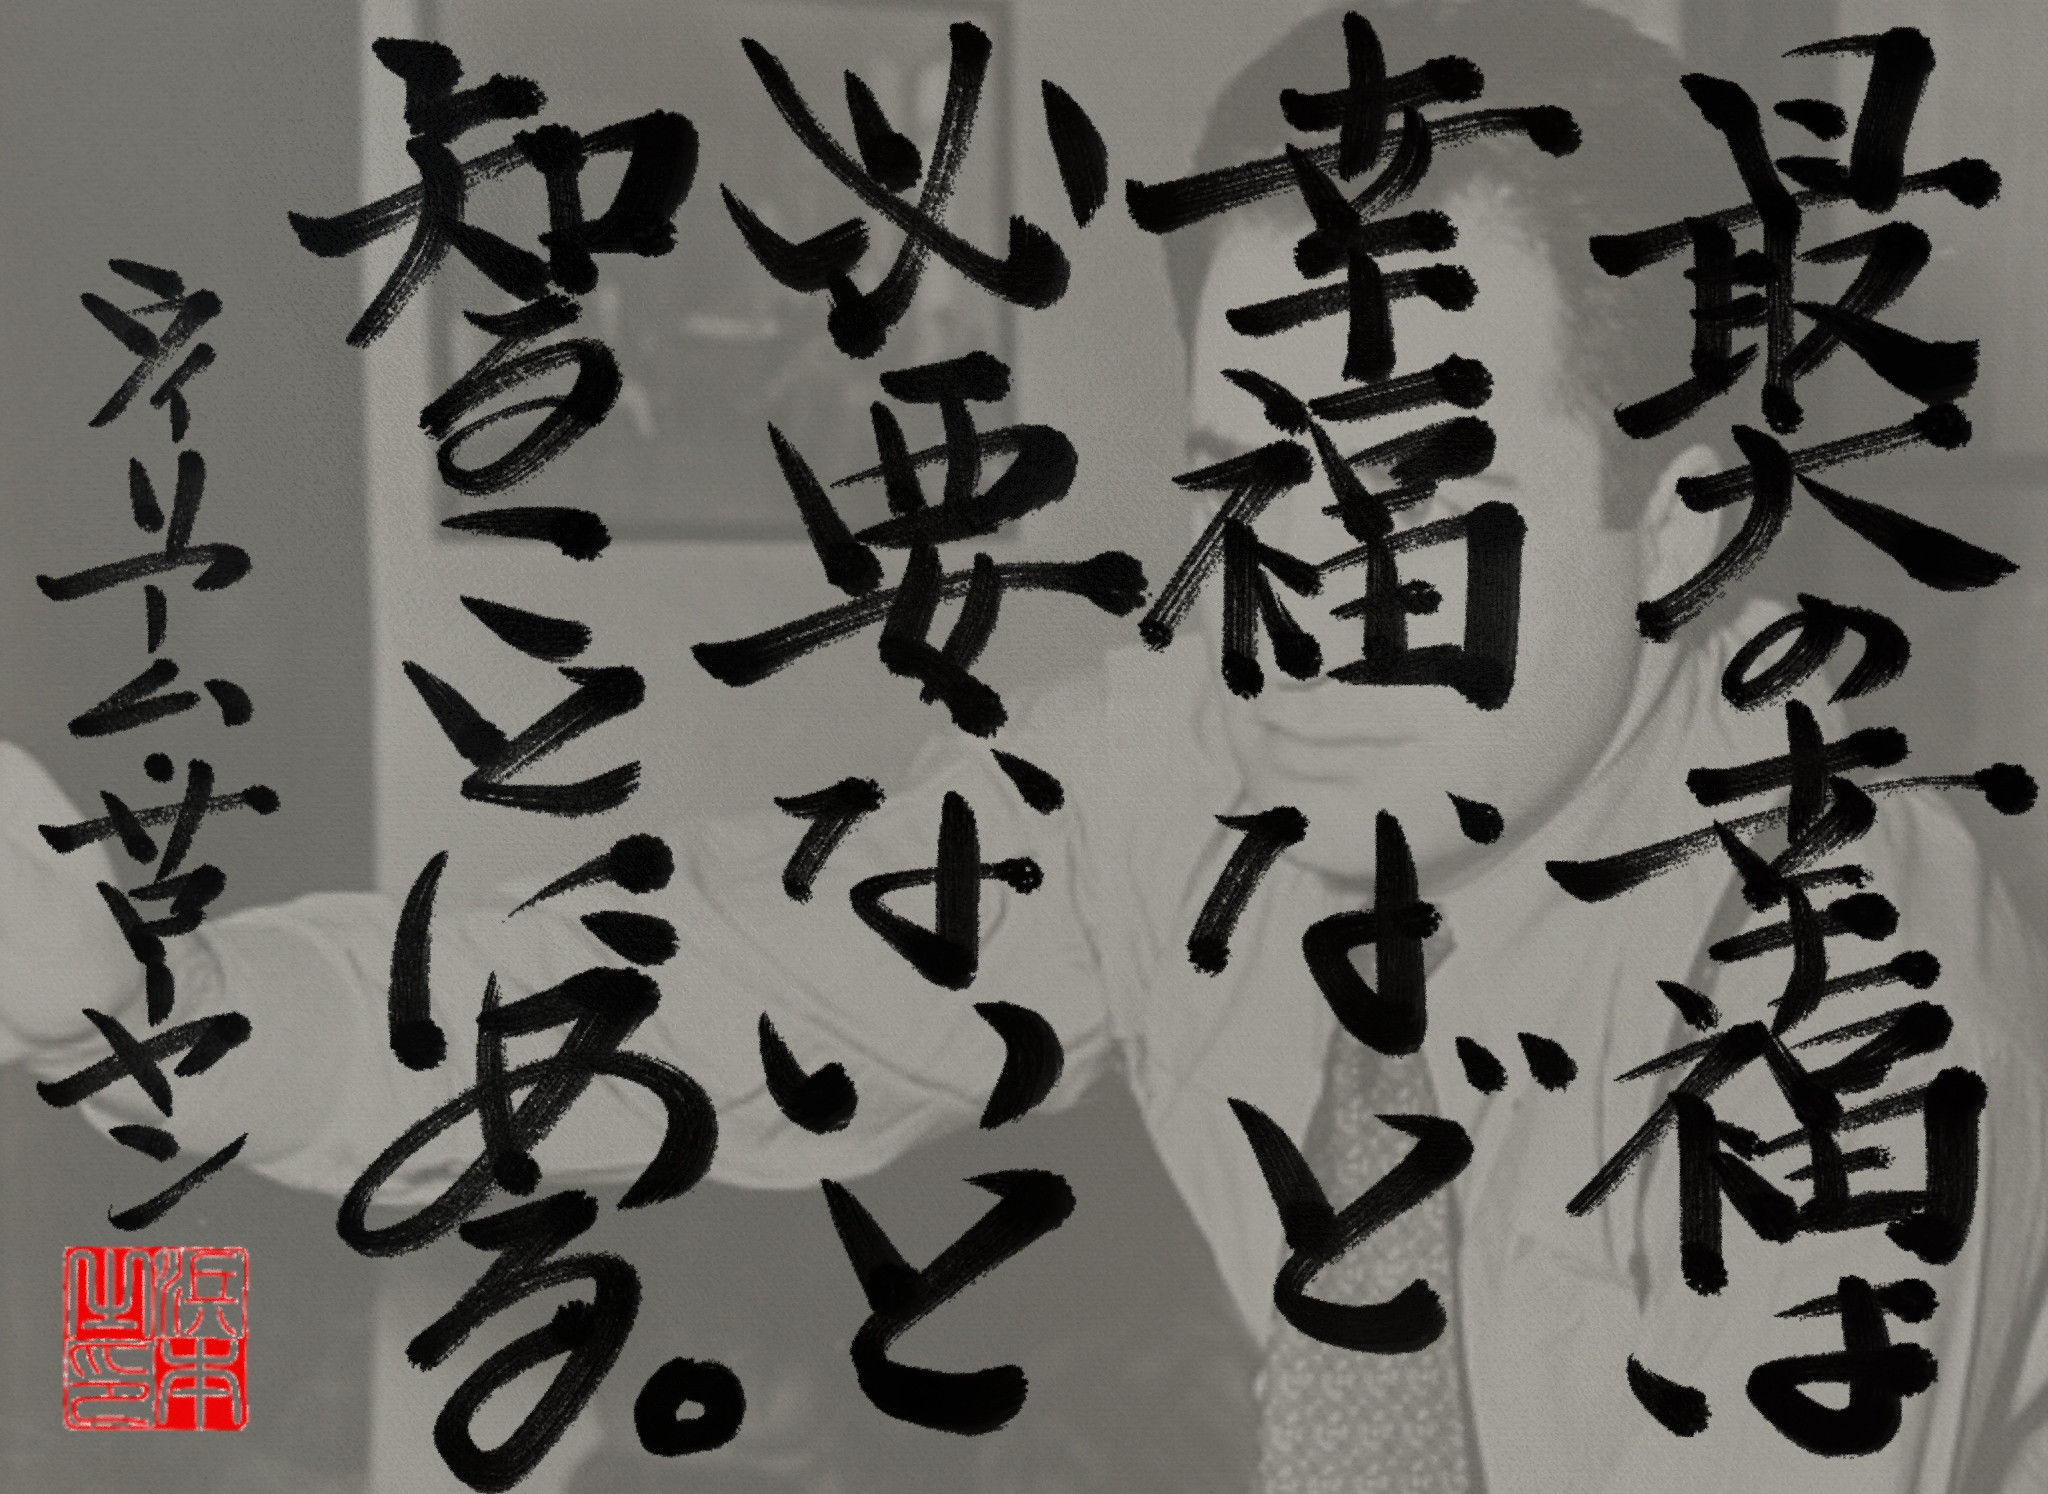 最大の幸福は
幸福など
必要ないと
知ることにある。
ウィリアム・サロヤン
浜本
之印